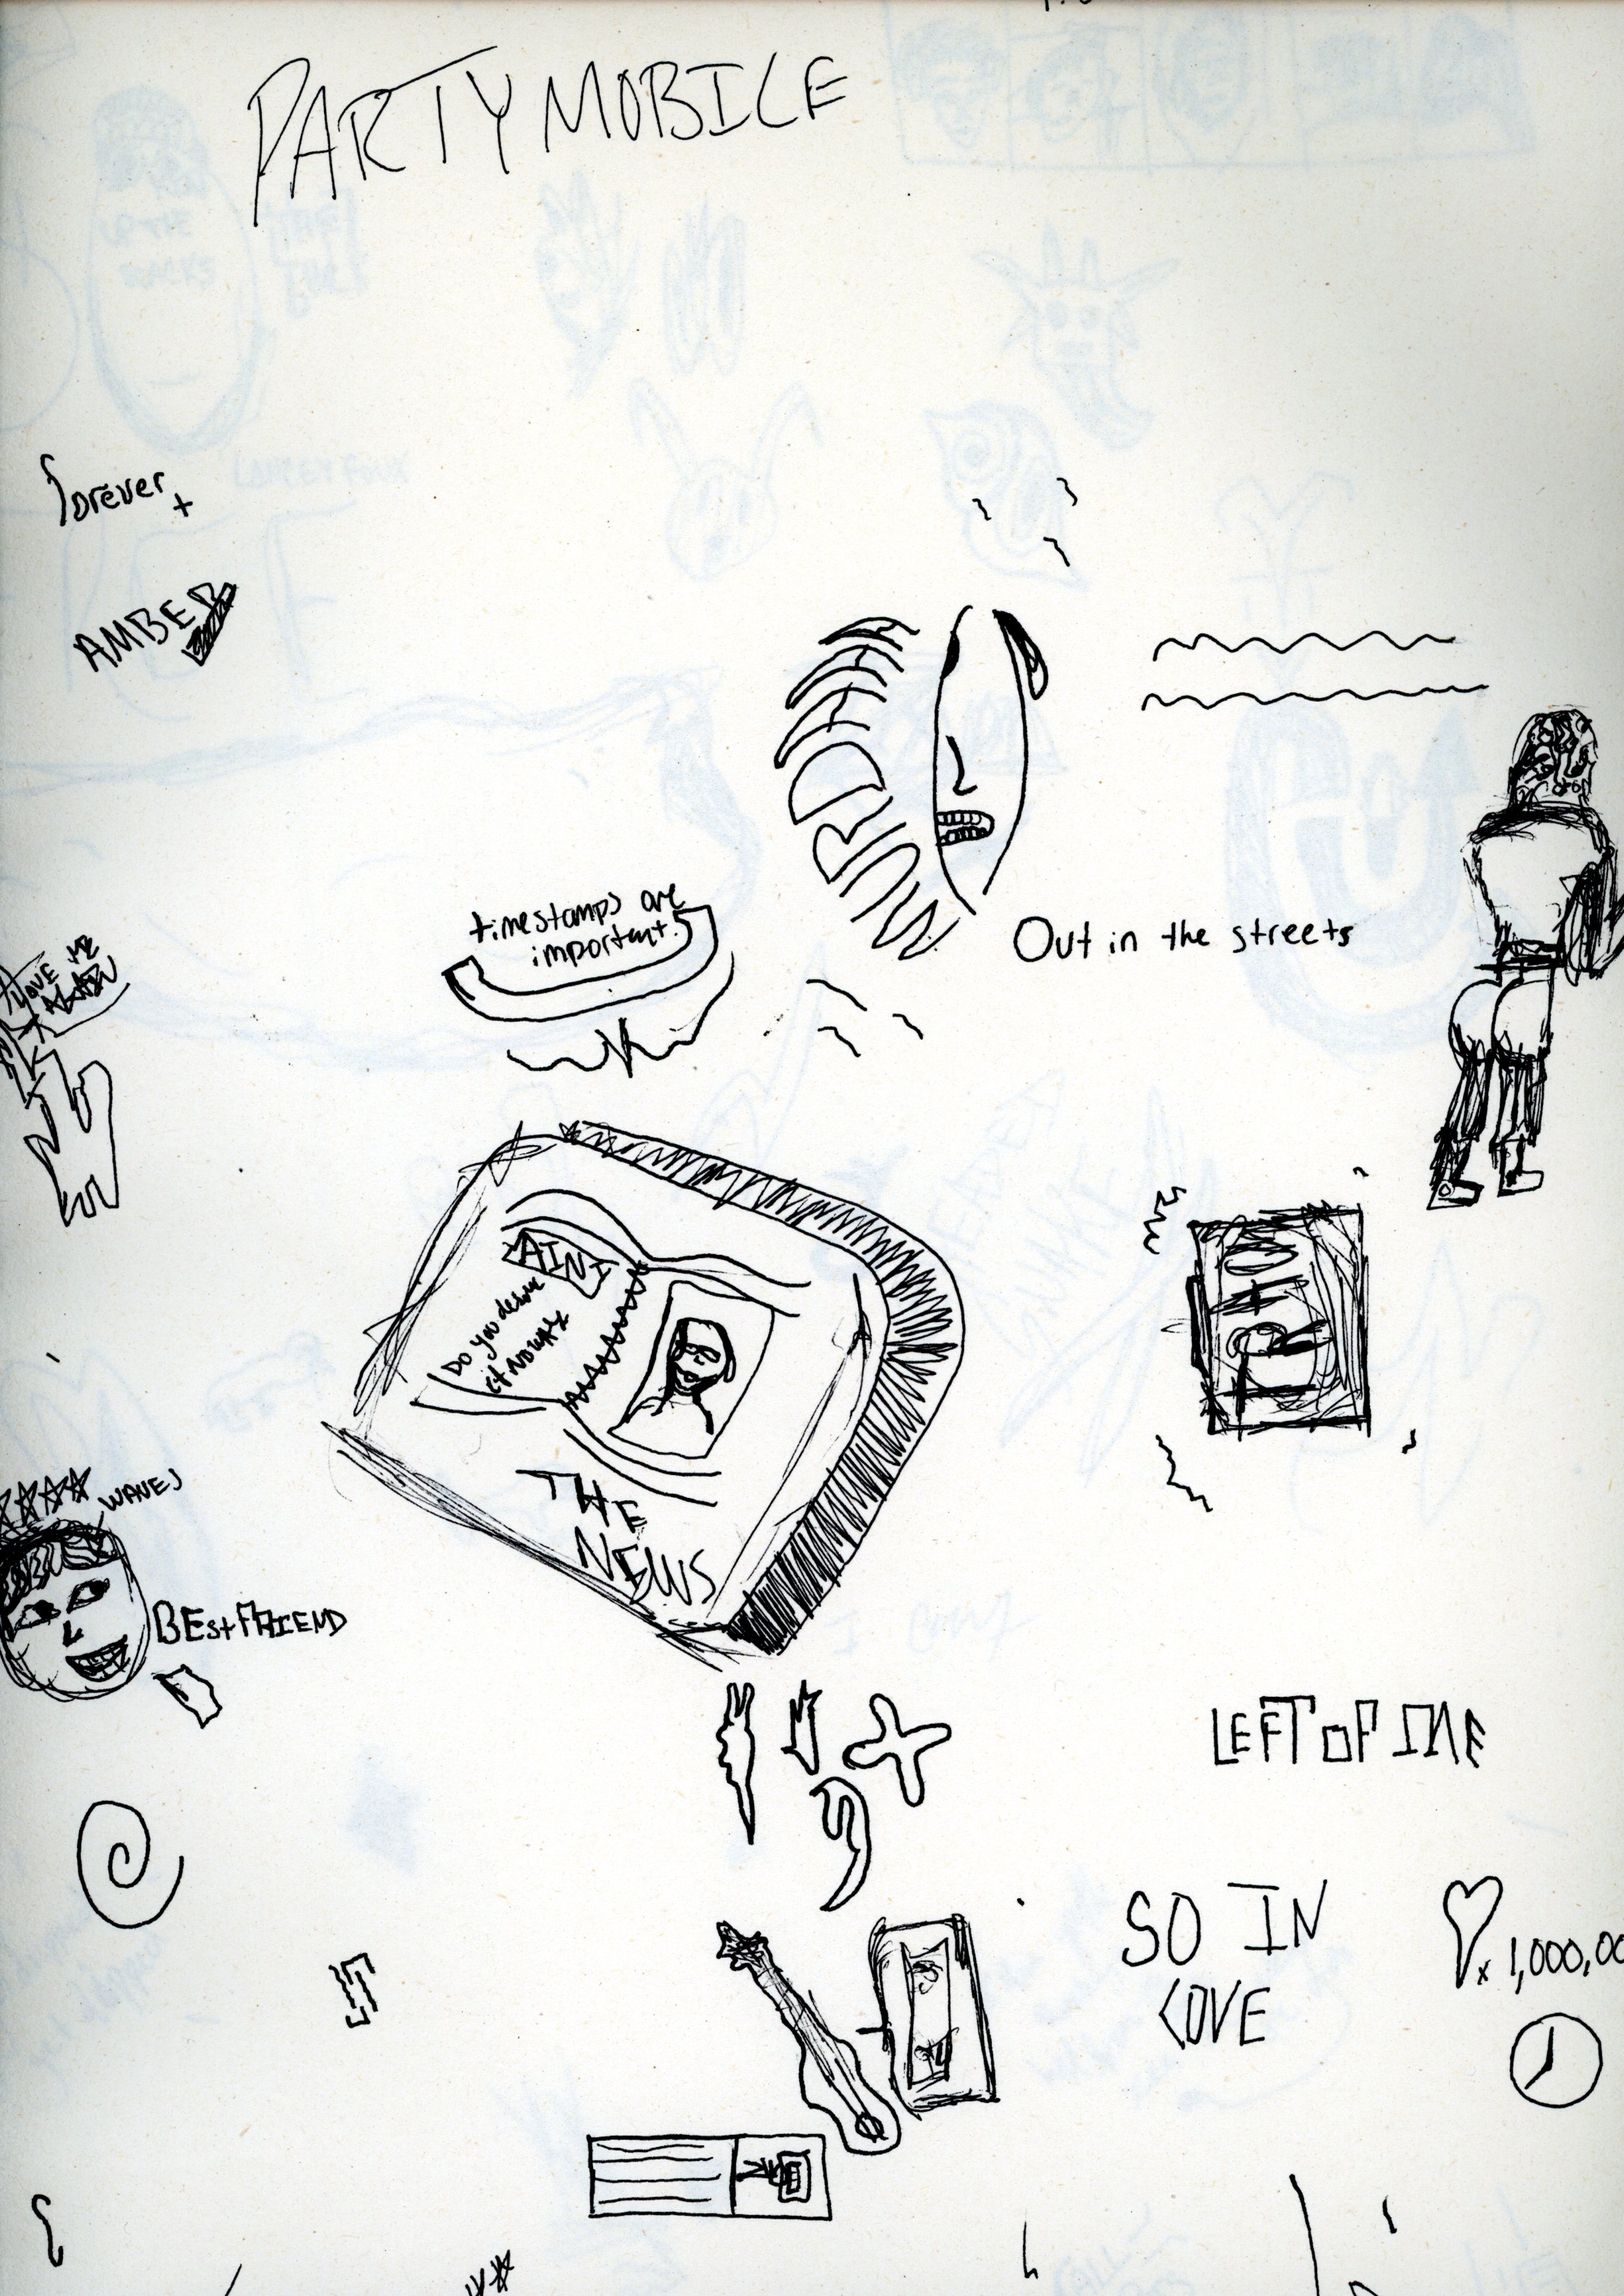 PARTYMOBILE
forever
AMBER
timestamps are
important.
Out in the streets
LOVE ME
AGAIN
WEIRD
AIN'T
Do you desire
THE
NEWS
TRIO
WAVES
BEstFRIEND
LEFT OF ME
SO IN
LOVE
x 1,000,00